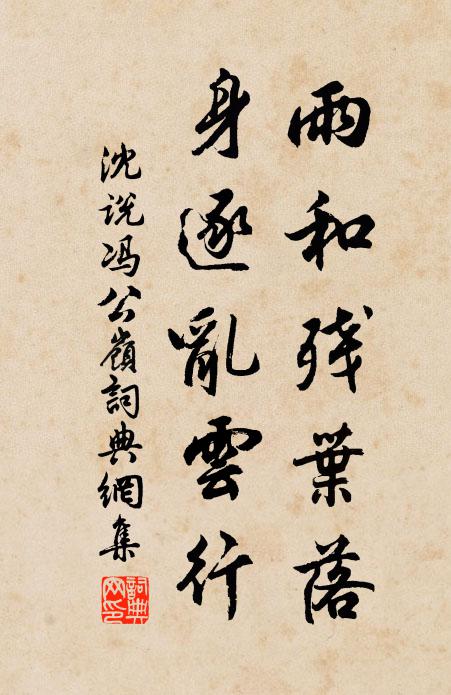 雨和残葉落
身逐亂雲行
沈说冯公嶺詞典網集
詞典网印